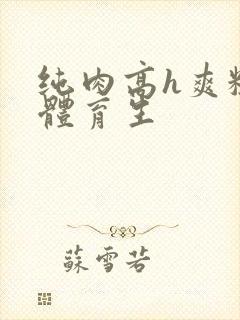 纯肉高h爽
體育生
蘇雪若